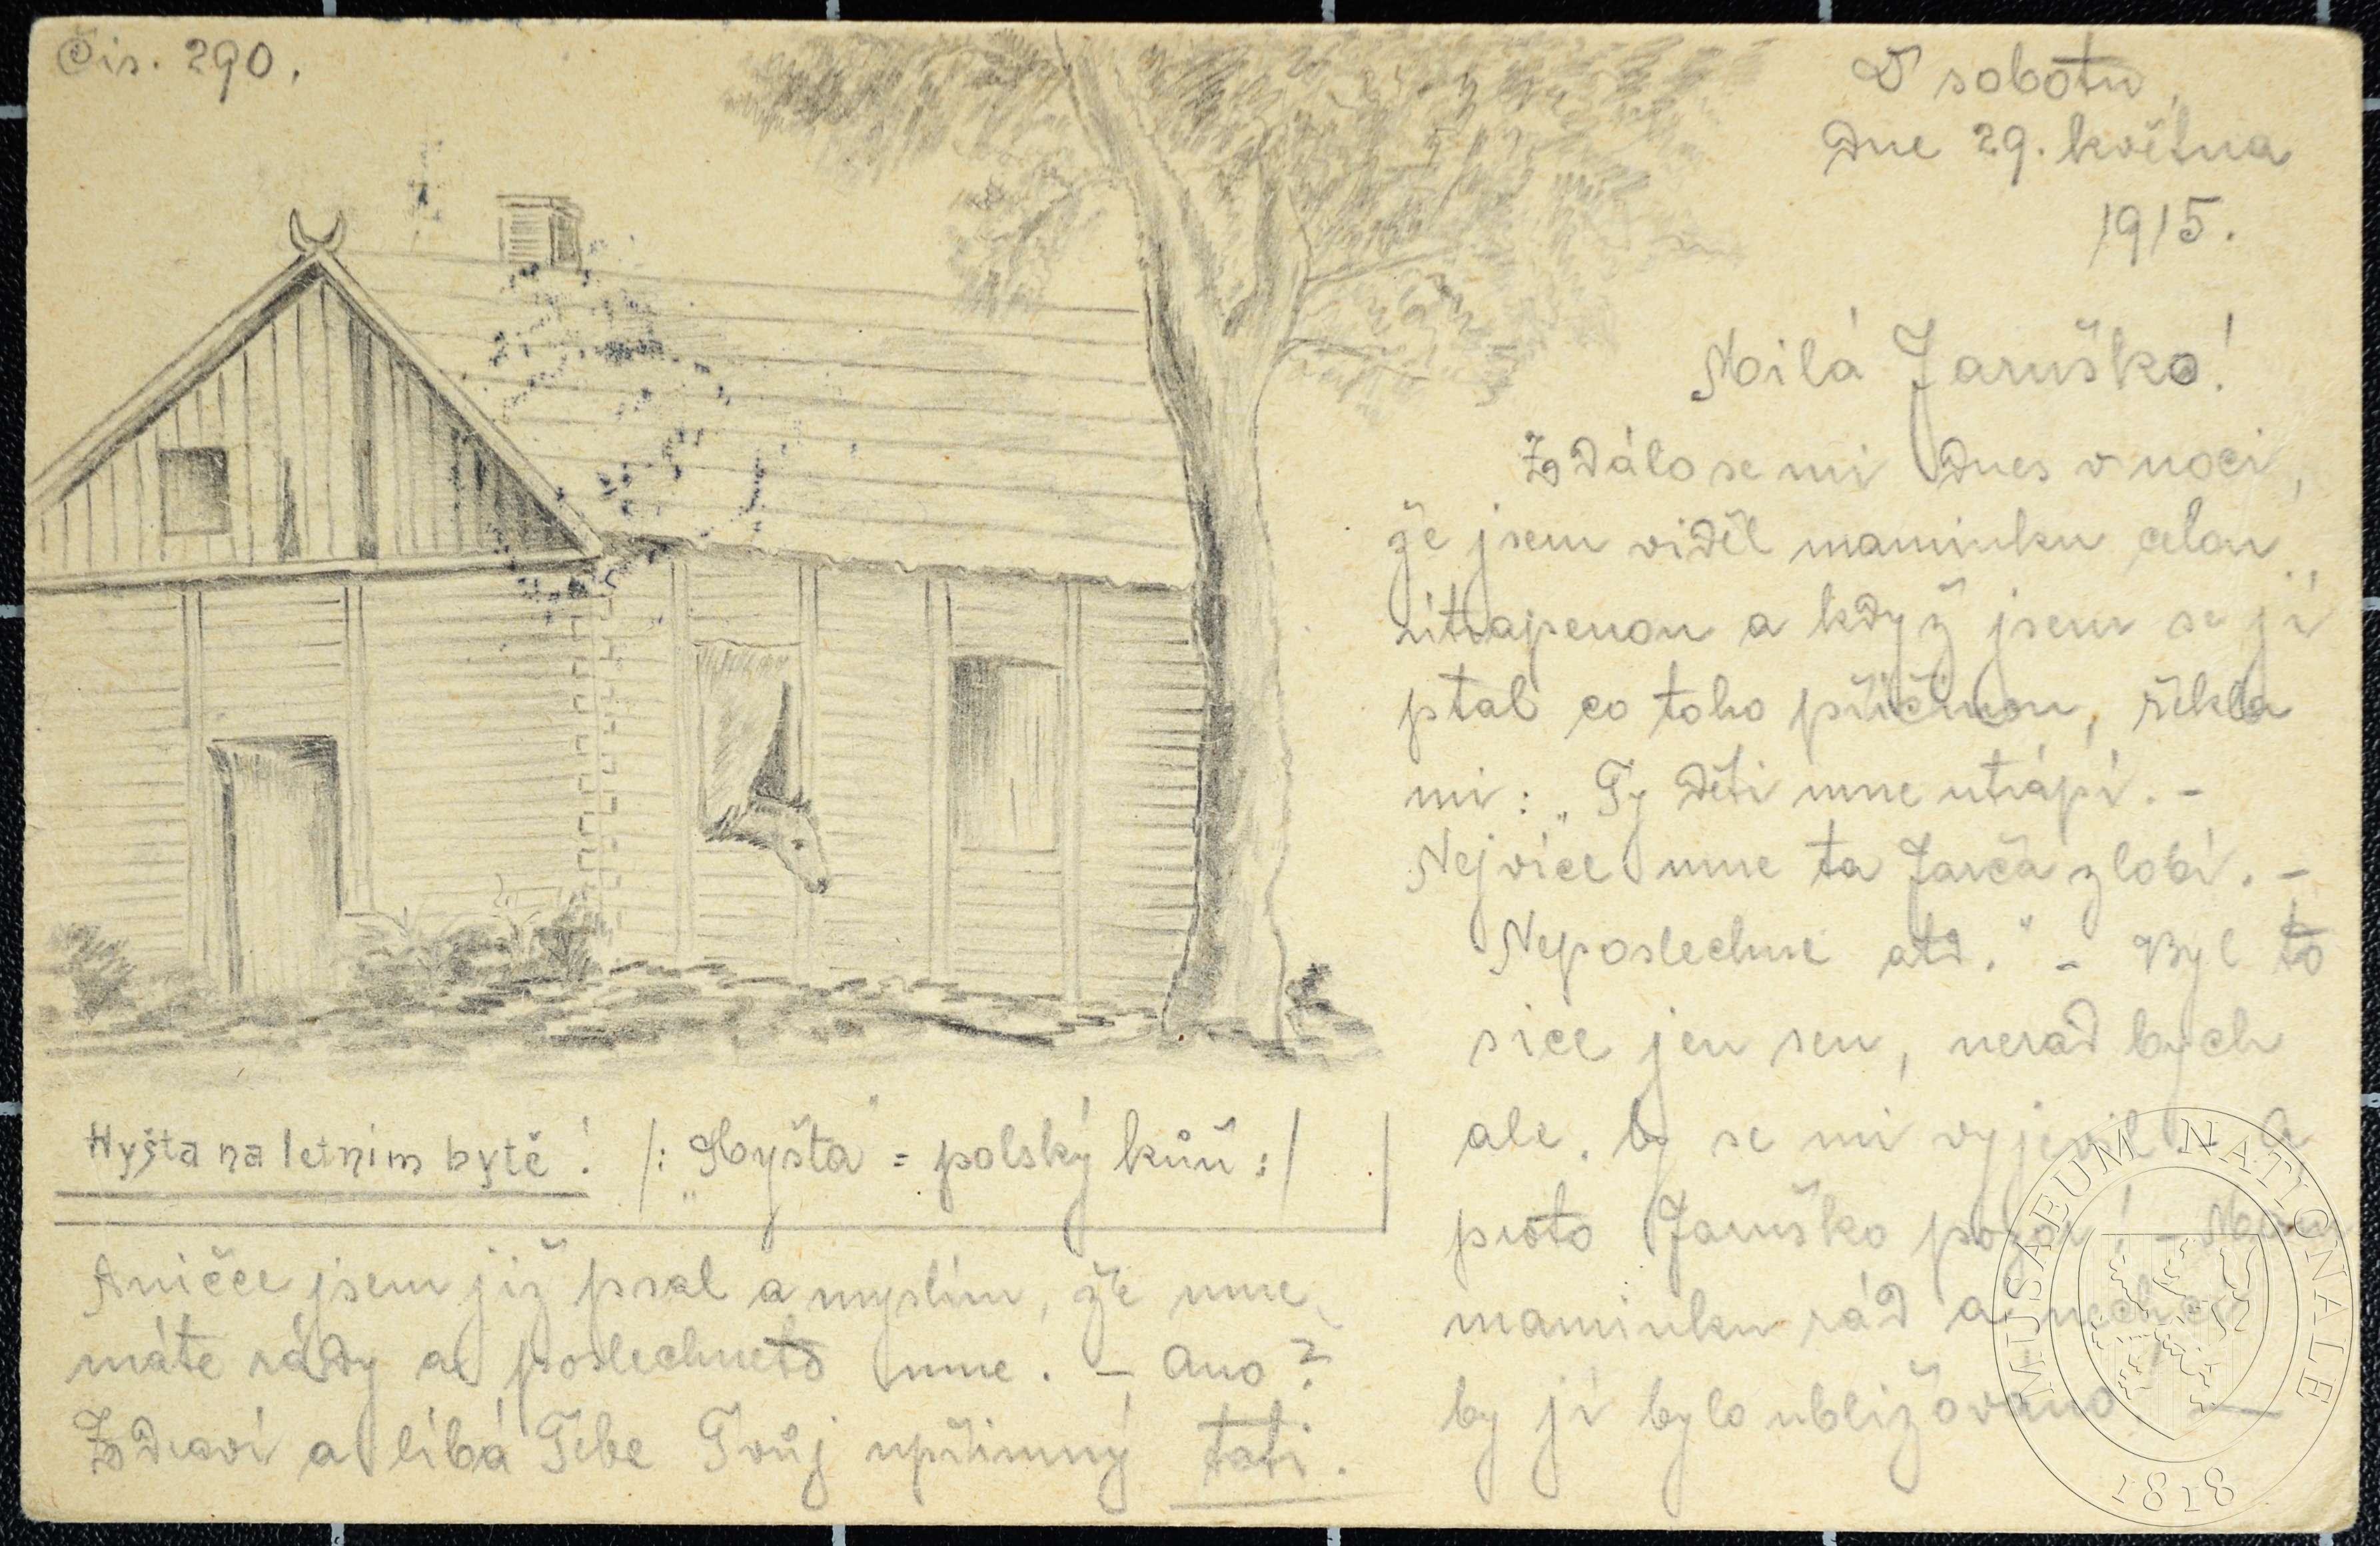 Čís. 290.
V sobotu,
dne 29. května
1915.
Milá Jaruško!
Zdálo se mi dnes v noci,
že jsem viděl maminku celou
utrápenou a když jsem se jí
ptal co toho příčinou, řekla
mi: „Ty děti mne utrápí. –
Nejvíce mne ta Jarča zlobí. –
Neposlechne atd." – Byl to
sice jen sen, nerad bych
ale, by se mi vyjevil. A
proto Jaruško pozor! – Mám
maminku rád a nechci
by jí bylo ubližováno. —
Hyšta na letním bytě! /: „Hyšta" = polský kůň :/
Aničce jsem již psal a myslím, že mne
máte rády a poslechnete mne. – Ano?
Zdraví a líbá Tebe Tvůj upřímný tati.
MUSAEUM NATIONALE
1818